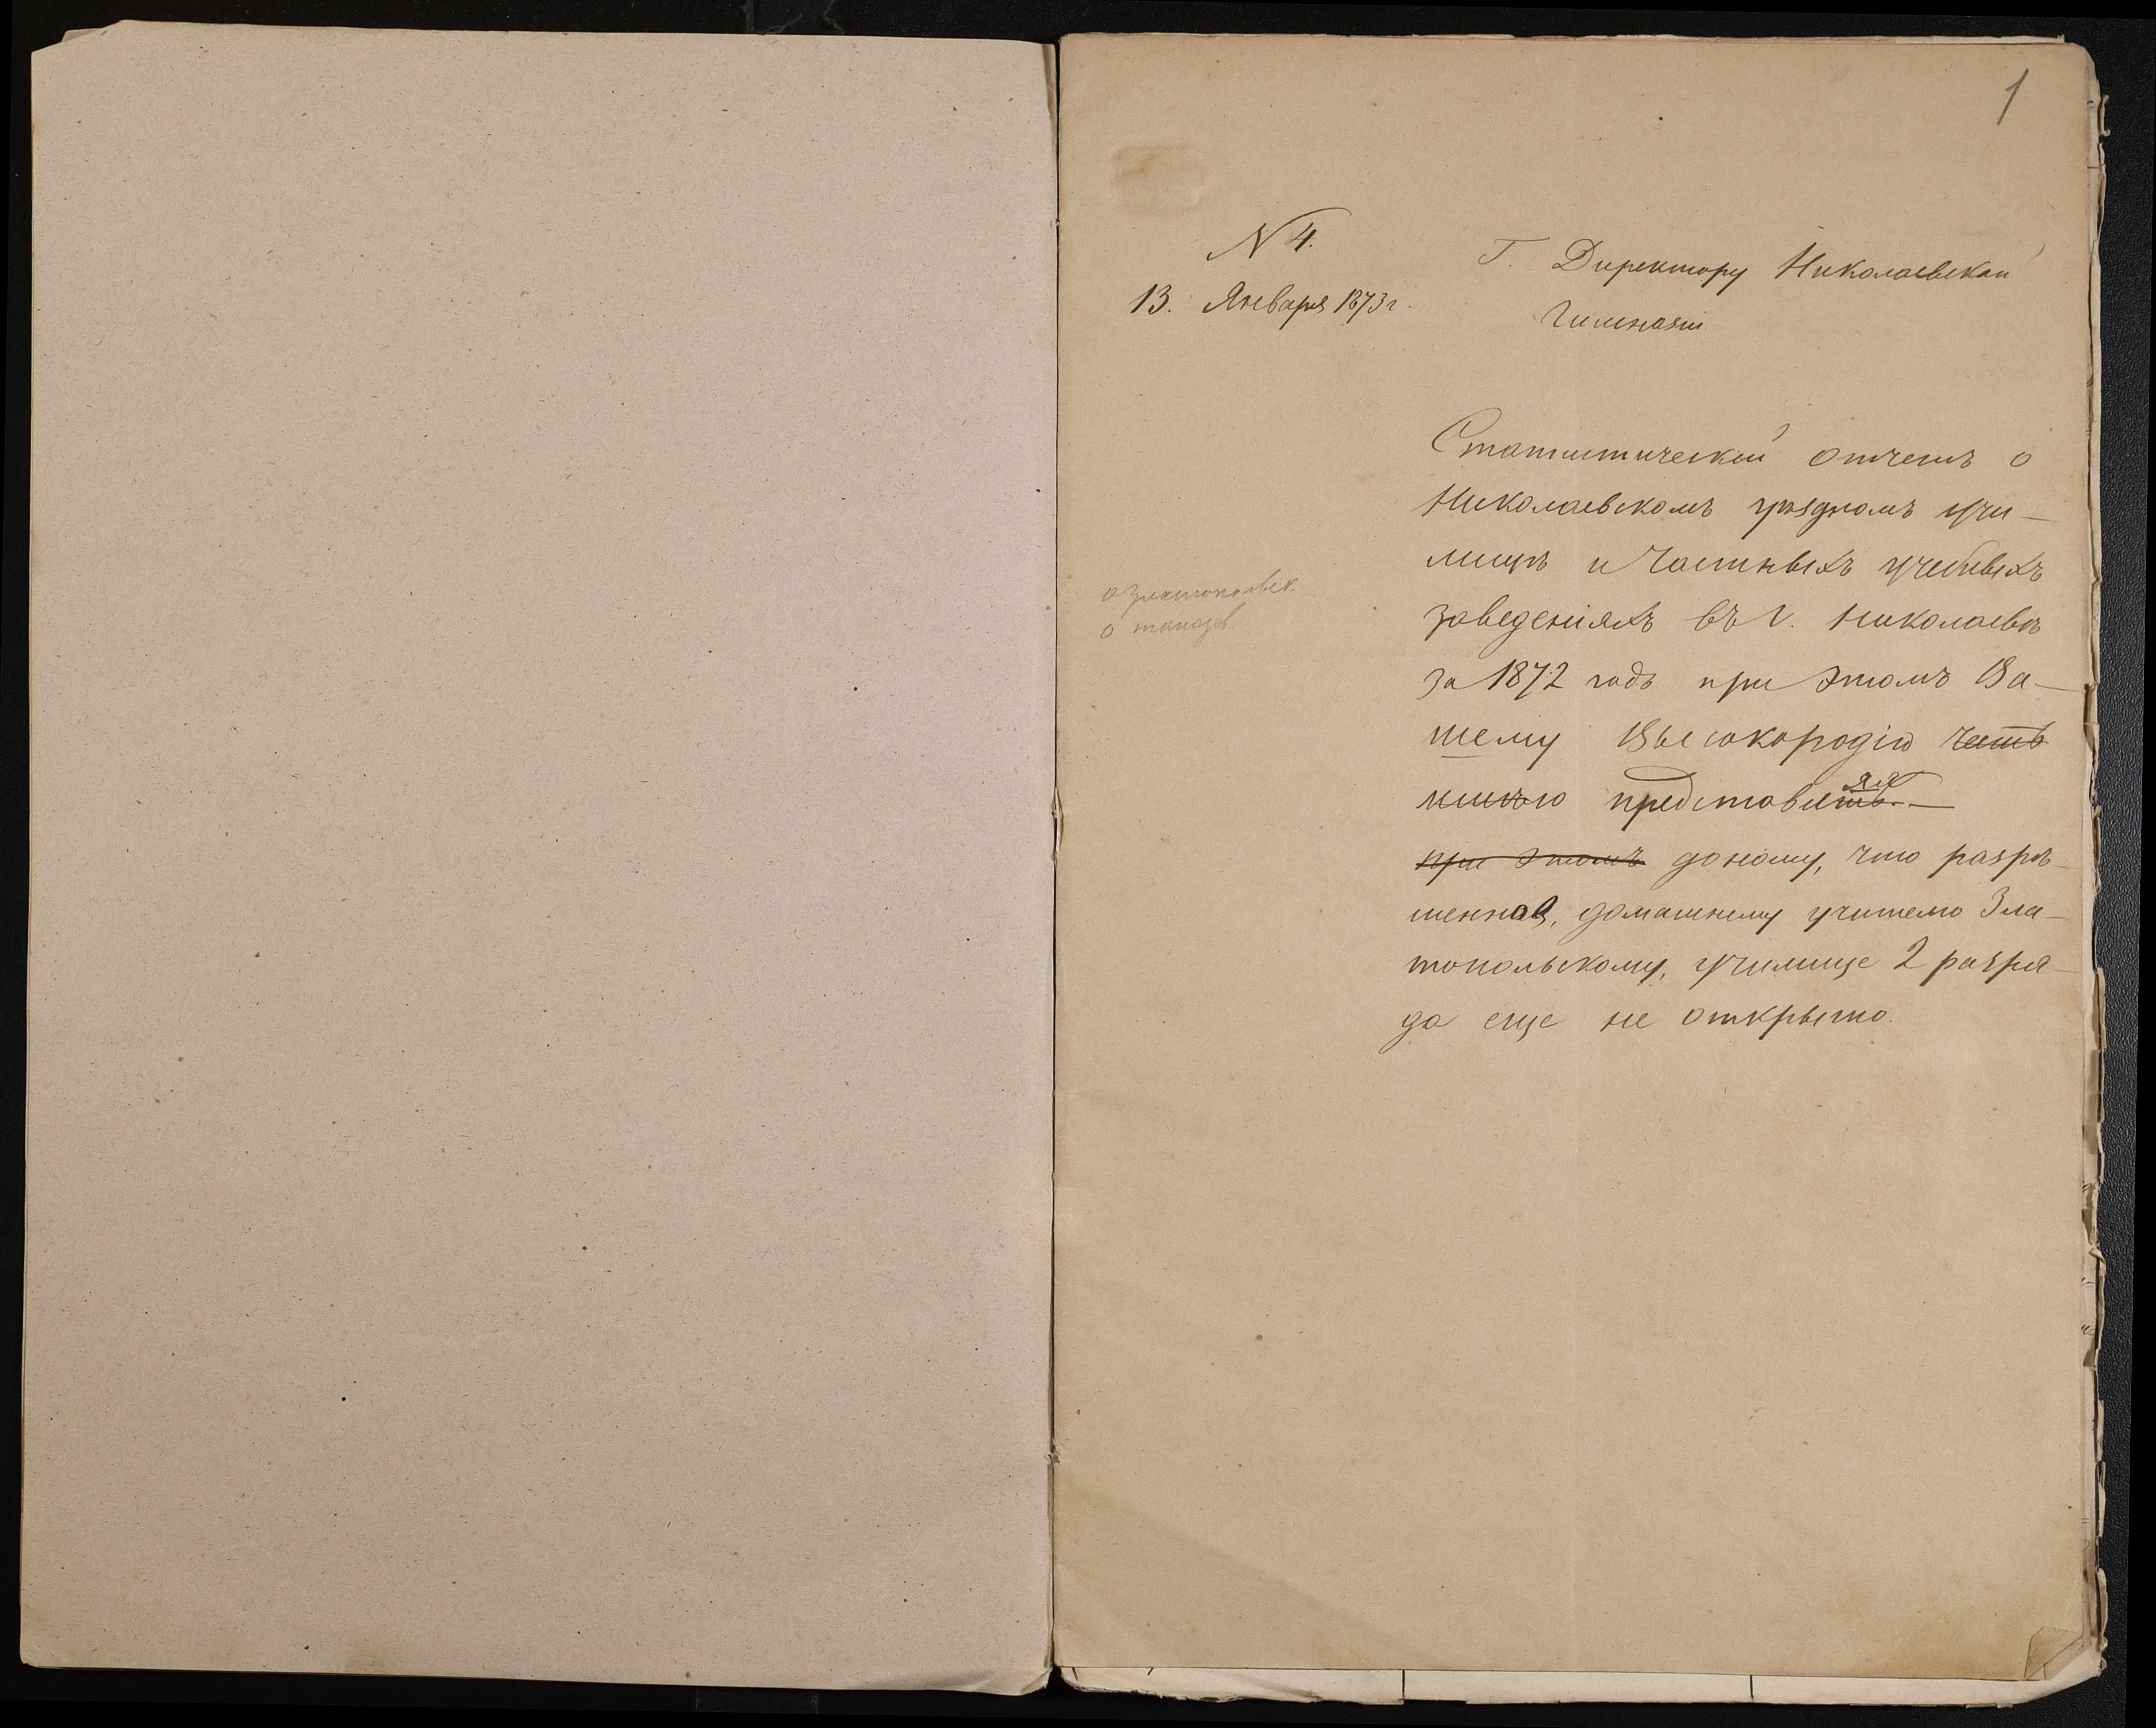 1
N 4.
13. Января 1873 г.
Г. Директору Николаевской
Гимназіи
Статистическій отчетъ о
Николаевскомъ уѣздномъ учи-
лищѣ и частныхъ учебныхъ
заведеніяхъ въ г. Николаевѣ
за 1872 годъ при этомъ Ва-
шему Высокородію честь
имѣю представить.
яя
при этомъ доношу, что разрѣ-
шенное, домашнему учителю Зла-
топольскому, училище 2 разря-
да еще не открыто.